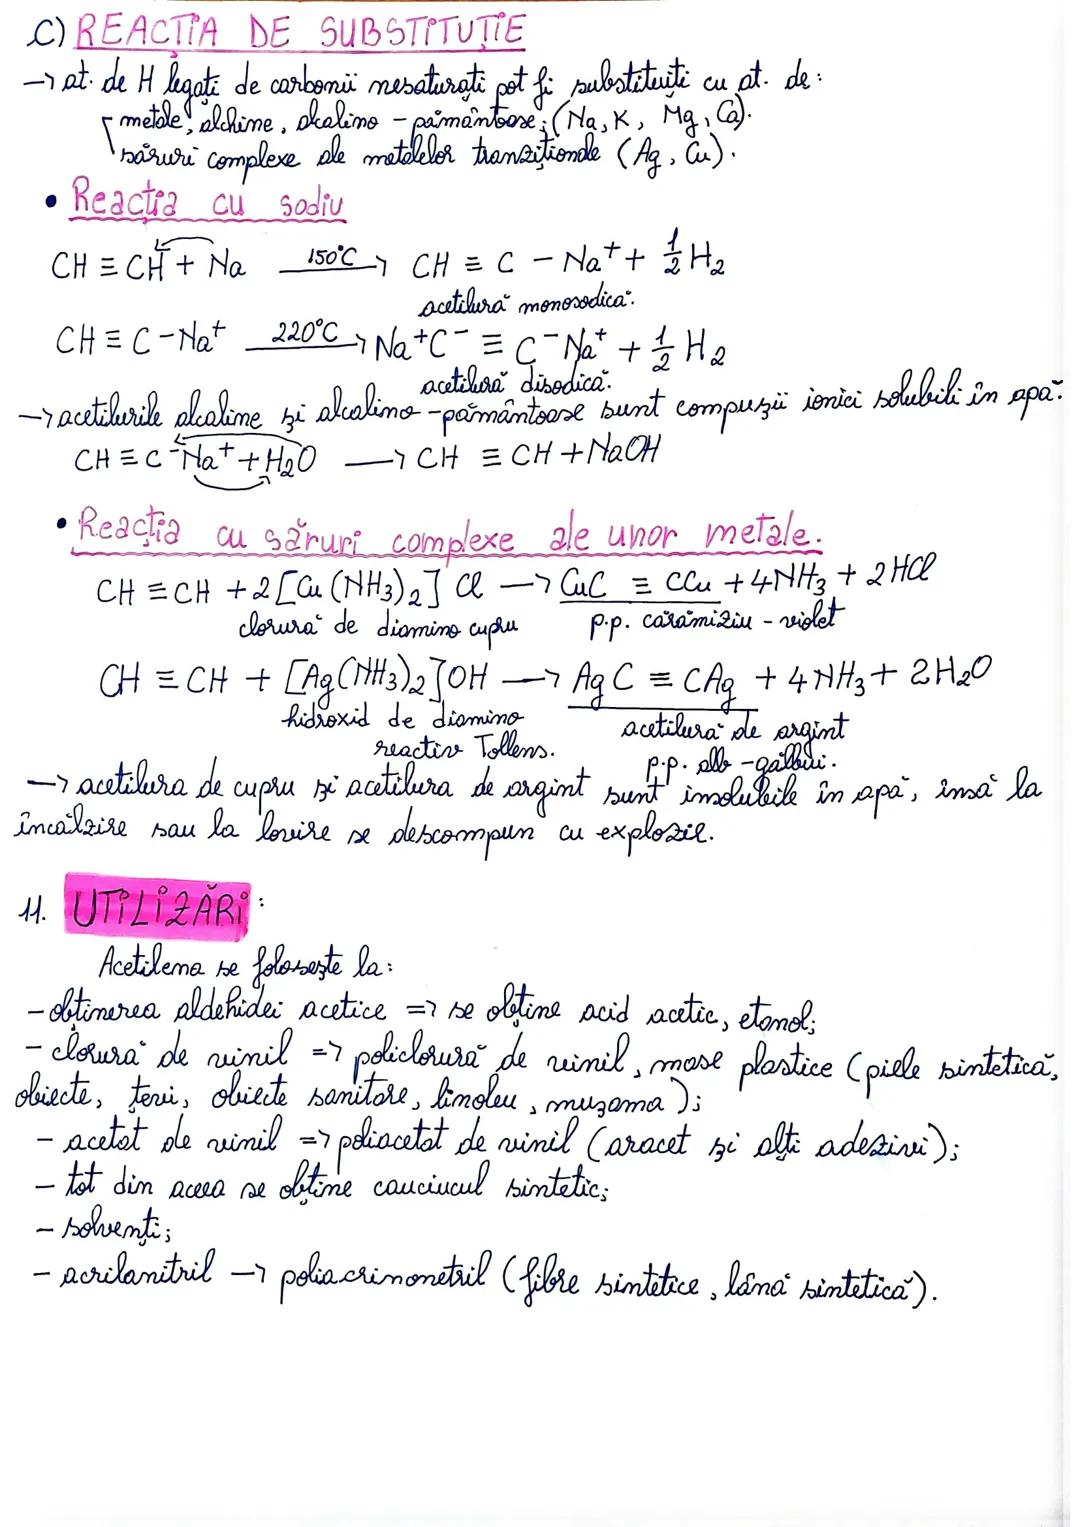 C) REACȚIA DE SUBSTITUȚIE
→ at. de H legați de carbonii nesaturați pot fi substituiți cu at. de:
metale, alchine, alcalino - pământoase; (Na, K, Mg, Ca).
săruri complexe ale metalelor tranziționale (Ag, Cu).
• Reacția cu sodiu
CH ≡ CH + Na 150°C → CH ≡ C - Na⁺ + 1/2 H₂
acetilură monosodică.
CH ≡ C - Na⁺ 220°C → Na⁺C⁻ ≡ C⁻Na⁺ + 1/2 H₂
acetilură disodică.
→ acetilurile alcaline și alcalino - pământoase sunt compușii ionici solubili în apă.
CH ≡ C⁻Na⁺ + H₂O → CH ≡ CH + NaOH
• Reacția cu săruri complexe ale unor metale.
CH ≡ CH + 2 [Cu (NH₃)₂] Cl → CuC ≡ CCu + 4NH₃ + 2 HCl
clorură de diamino cupru p.p. cărămiziu - violet
CH ≡ CH + [Ag(NH₃)₂]OH → Ag C ≡ CAg + 4 NH₃ + 2 H₂O
hidroxid de diamino acetilură de argint
reactiv Tollens. p.p. alb - gălbui.
→ acetilura de cupru și acetilura de argint sunt insolubile în apă, însă la
încălzire sau la lovire se descompun cu explozie.
11. UTILIZĂRI:
Acetilena se folosește la:
- obținerea aldehidei acetice => se obține acid acetic, etanol;
- clorură de vinil => policlorură de vinil, mase plastice (piele sintetică,
obiecte, țevi, obiecte sanitare, linoleu, mușama);
- acetat de vinil => poliacetat de vinil (aracet și alți adezivi);
- tot din aceea se obține cauciucul sintetic;
- solvenți;
- acrilanitril → poliacrinonetril (fibre sintetice, lână sintetică).